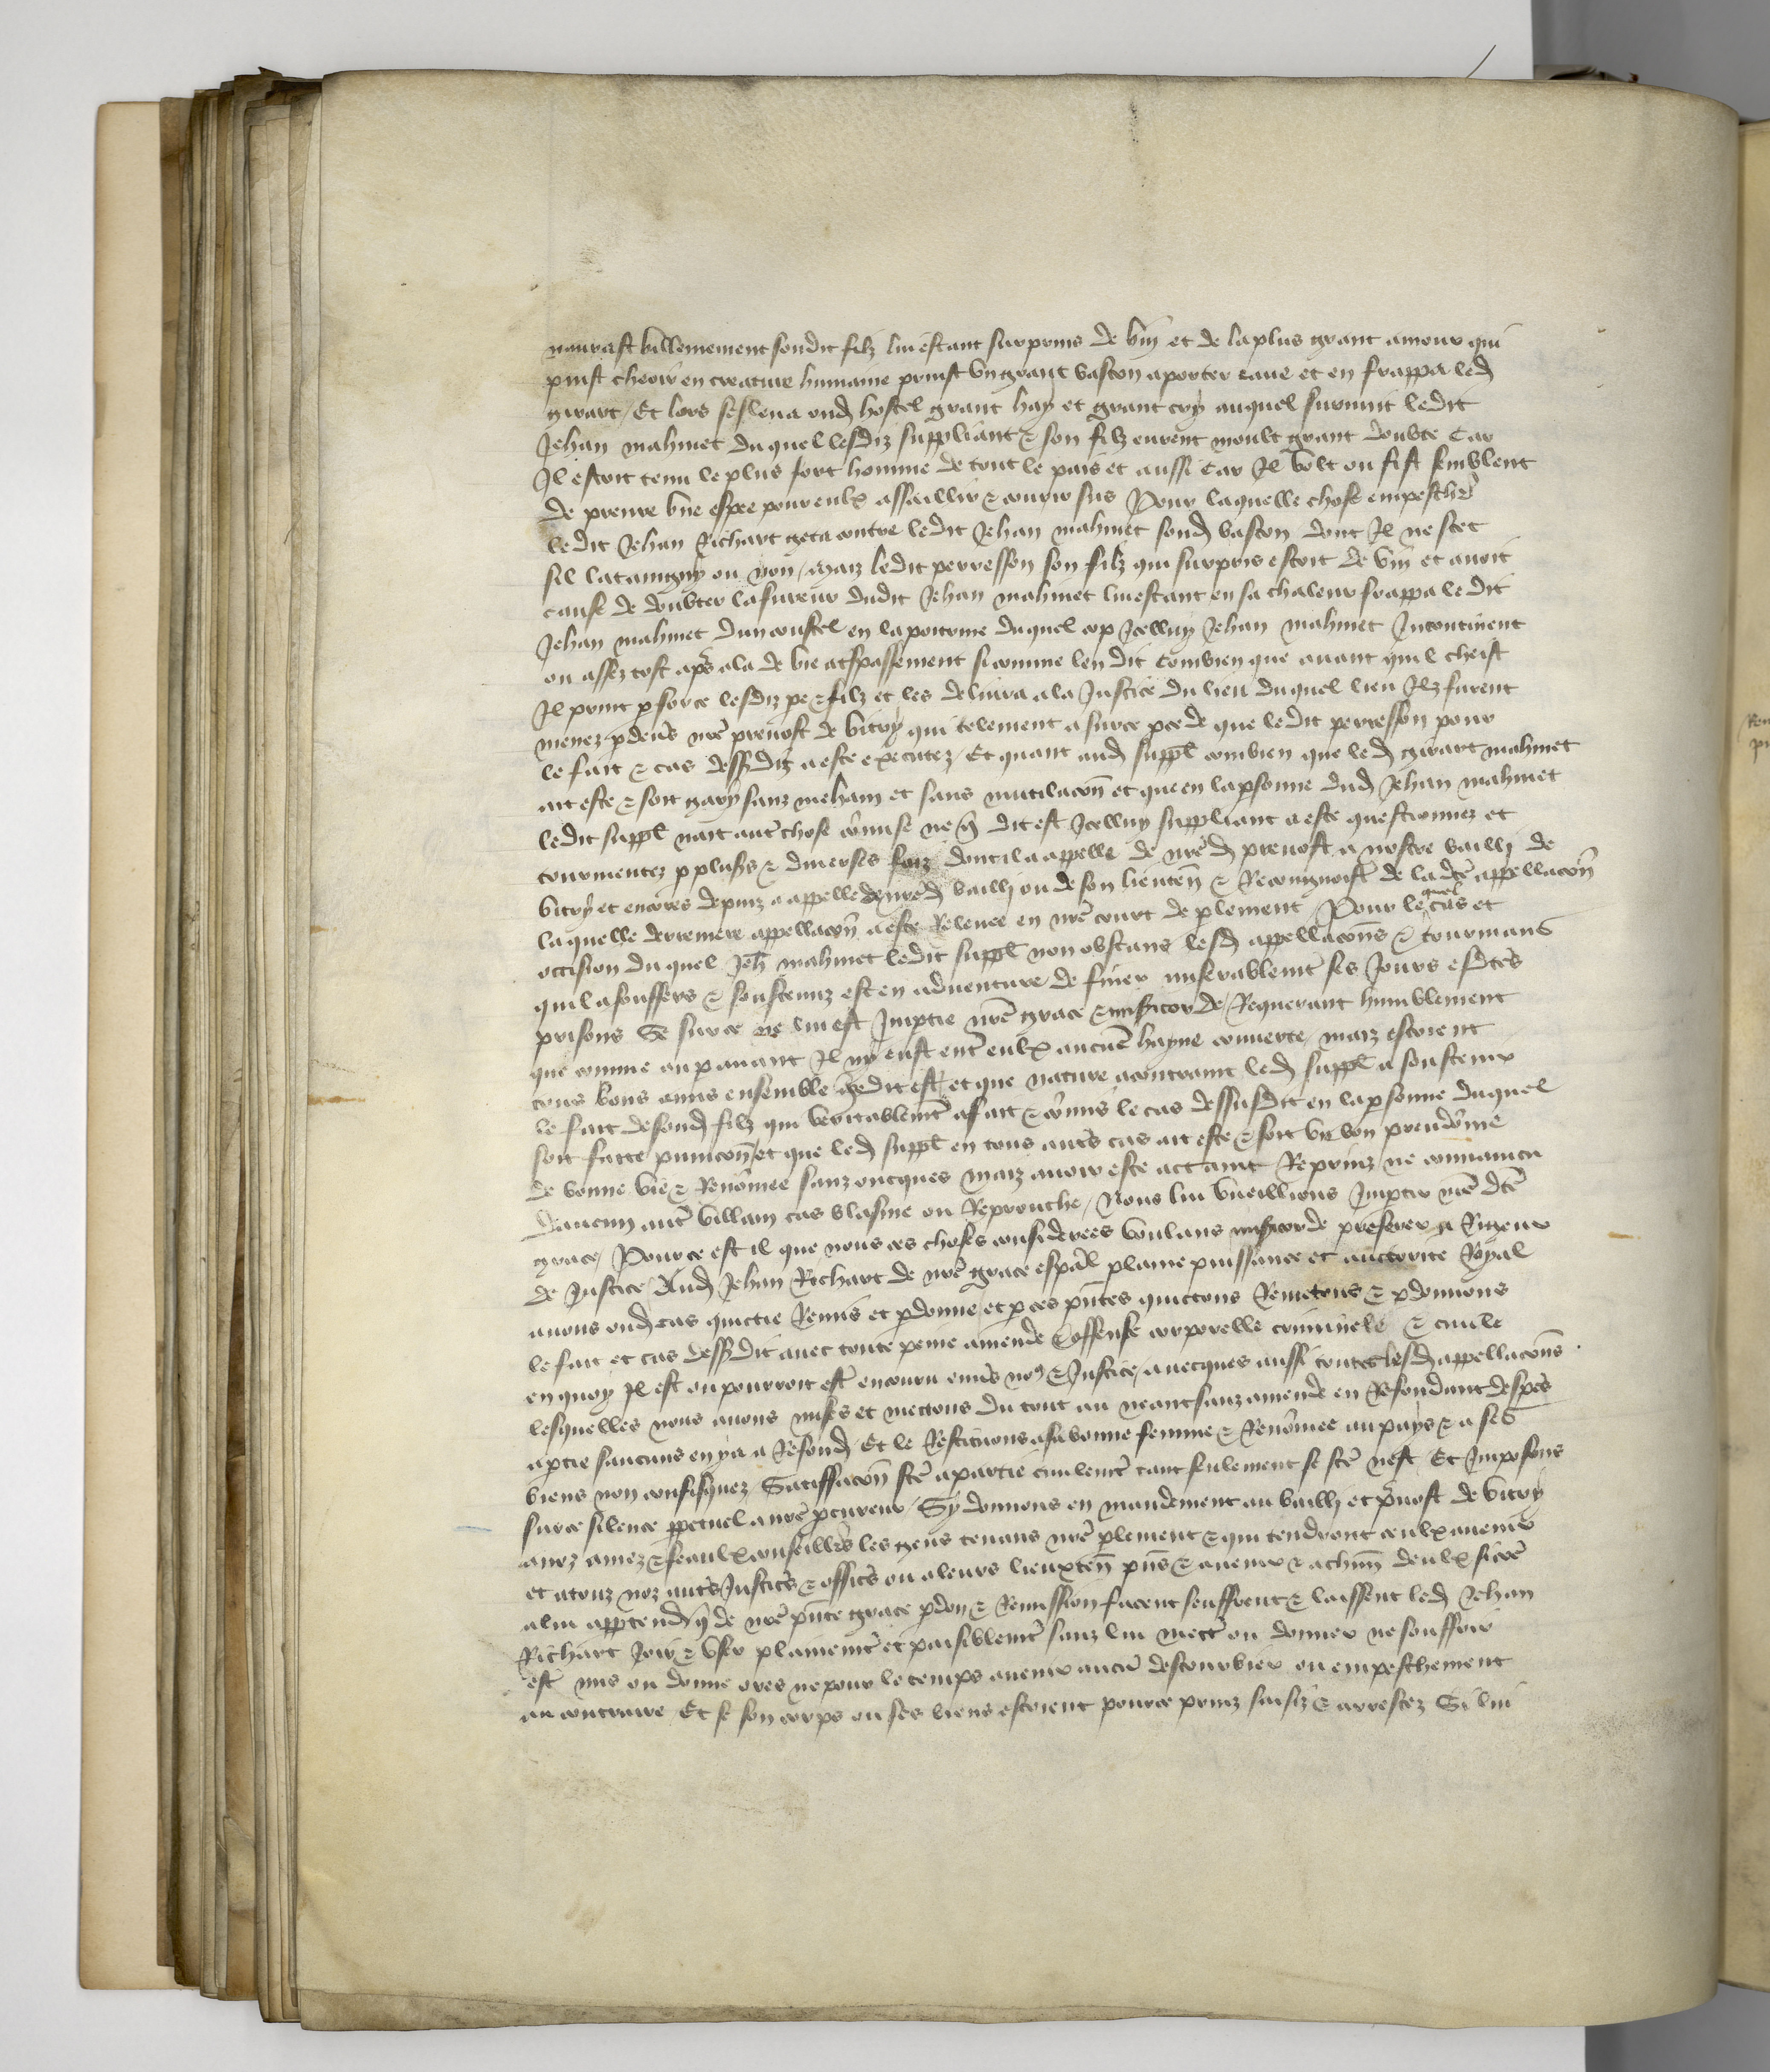 mourast villement sondit filz lui estant surprins de vin et de la plus grant amour qui
puist cheoir en creature humaine prinst un grant baston a porter eaue et en frappa led
Girart / Et lors se sleva oud hostel grant hay et grant cry auquel survint ledit
Jehan mahuet duquel lesdiz suppliant & son filz eurent moult grant doubte Car
Il estoit tenu le plus fort homme de tout le pais et aussi Car Il volt ou fist semblent
de prenre une espee pour eulx assaillir & courir sus Pour laquelle chose empeschr
ledit Jehan Richart geta contre ledit Jehan mahuet sond baston dont Il ne scet
sil lataingny ou non / Maiz ledit perresson son filz qui surpris estoit de vin et avoit
cause de doubter la fureur dudit Jehan mahuet lui estant en sa chaleur frappa ledit
Jehan mahuet dun coustel en la poitrine duquel cop Icelluy Jehan mahuet Incontinent
ou assez tost aps ala de vie a trspassement si comme len dit Combien que avant quil cheist
Il print p force lesdiz pe & filz et les delivra a la Justice du lieu duquel lieu Ilz furent
menez p devs nre prevost de vitry qui telement a sur ce pcede que ledit perresson pour
le fait & cas dessusdiz a este executez / Et quant aud suppl combien que led Girart mahuet
ait este & soit gary sanz mehain et sans mutilacon et que en la psonne dud Jehan mahuet
ledit suppl nait aut chose comise ne q dit est Icelluy suppliant a este questionnez et
tourmentez p plusrs & diverses foiz dont il a appelle de nred prevost a nostre bailli de
vitry et encores depuiz a appelle de nred bailli ou de son lieuten & Recongnoist de la dte appellacon
laquelle derreniere appellacon a este Relevee en nre court de plement / Pour lequel cas et
occision duquel Jeh mahuet ledit suppl non obstans lesd appellacons & tourmans
quil a souffers & soustenuz est en adventure de finer miserablemt ses Jours esdtes
prisons Se sur ce ne lui est Imptie nre grace & misicorde / Requerant humblement
que comme au pavant Il ny eust ent eulx aucune hayne couverte / maiz estoient
tous bons amis ensemble q dit est / et que nature a contraint led suppl a soustenir
le fait de sond filz qui veritablemt a fait & comis le cas dessusdit en la psonne duquel
soit faite punicon / et que led suppl en tous auts cas ait este & soit un bon preudome
de bonne vie & Renomee sanz oncques maiz avoir este attaint Reprins ne convaincu
daucun aut villain cas blasme ou Reprouche / Nous lui vueillions Imptir nre dte
grace / Pour ce est il que nous ces choses considerees voulans misicorde preferer a Rigeur
de Justice Aud Jehan Richart de nre grace espal plaine puissance et auctorite Royal
avons oud cas quictie Remis et pdonne / et p ces pntes quictons Remetons & pdonnons
le fait et cas dessusdit avec toute peine amende & offense corporelle criminele & civile
en quoy Il est ou pourroit est encouru envs no9 & Justice / avecques aussi toutes lesd appellacons
lesquelles nous avons mises et mectons du tout au neant sanz amende en Refondant despes
a ptie saucuns en y a a Refond / Et le Restituons a sa bonne femme & Renomee au pays & a ses
biens non confisquez Satiffacon fte a partie civilemt tant seulement se fte nest Et Imposons
sur ce silence ppetuel a nre pcureur / Sy donnons en mandement au bailli et prevost de vitry
a noz amez & feaulx conseillrs les gens tenans nre plement & qui tendront ceulx avenir
et a touz noz auts Justics & offics ou a leurs lieuxten pns & avenir & a chun deulx si coe
a lui apptendr q de nre pnte grace pdon & Remission facent seuffrent & laissent led Jehan
Richart Joir & user plainemt et paisiblemt sanz lui mect ou donner ne souffrir
est mis ou donne ores ne pour le temps avenir aucun destourbier ou empeschement
au contraire Et se son corps ou ses biens estoient pour ce prinz saisiz & arrestez Si lui